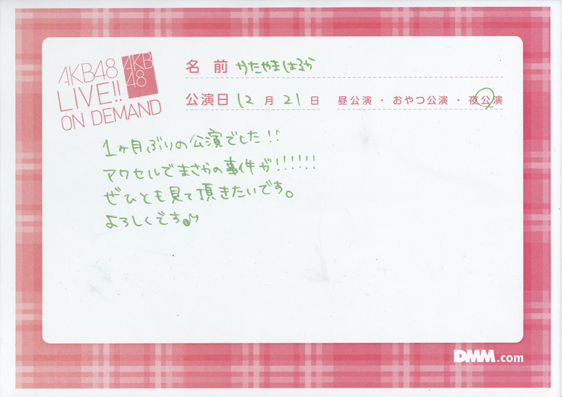 AKB48
LIVE!!
ON DEMAND
AKB
48
名 前 かたやまはるか
公演日 12 月 21 日 昼公演 ・ おやつ公演 ・ 夜公演
1ヶ月ぶりの公演でした!!
アクセルでまさかの事件が!!!!!!
ぜひとも見て頂きたいです。
よろしくです♪
DMM.com